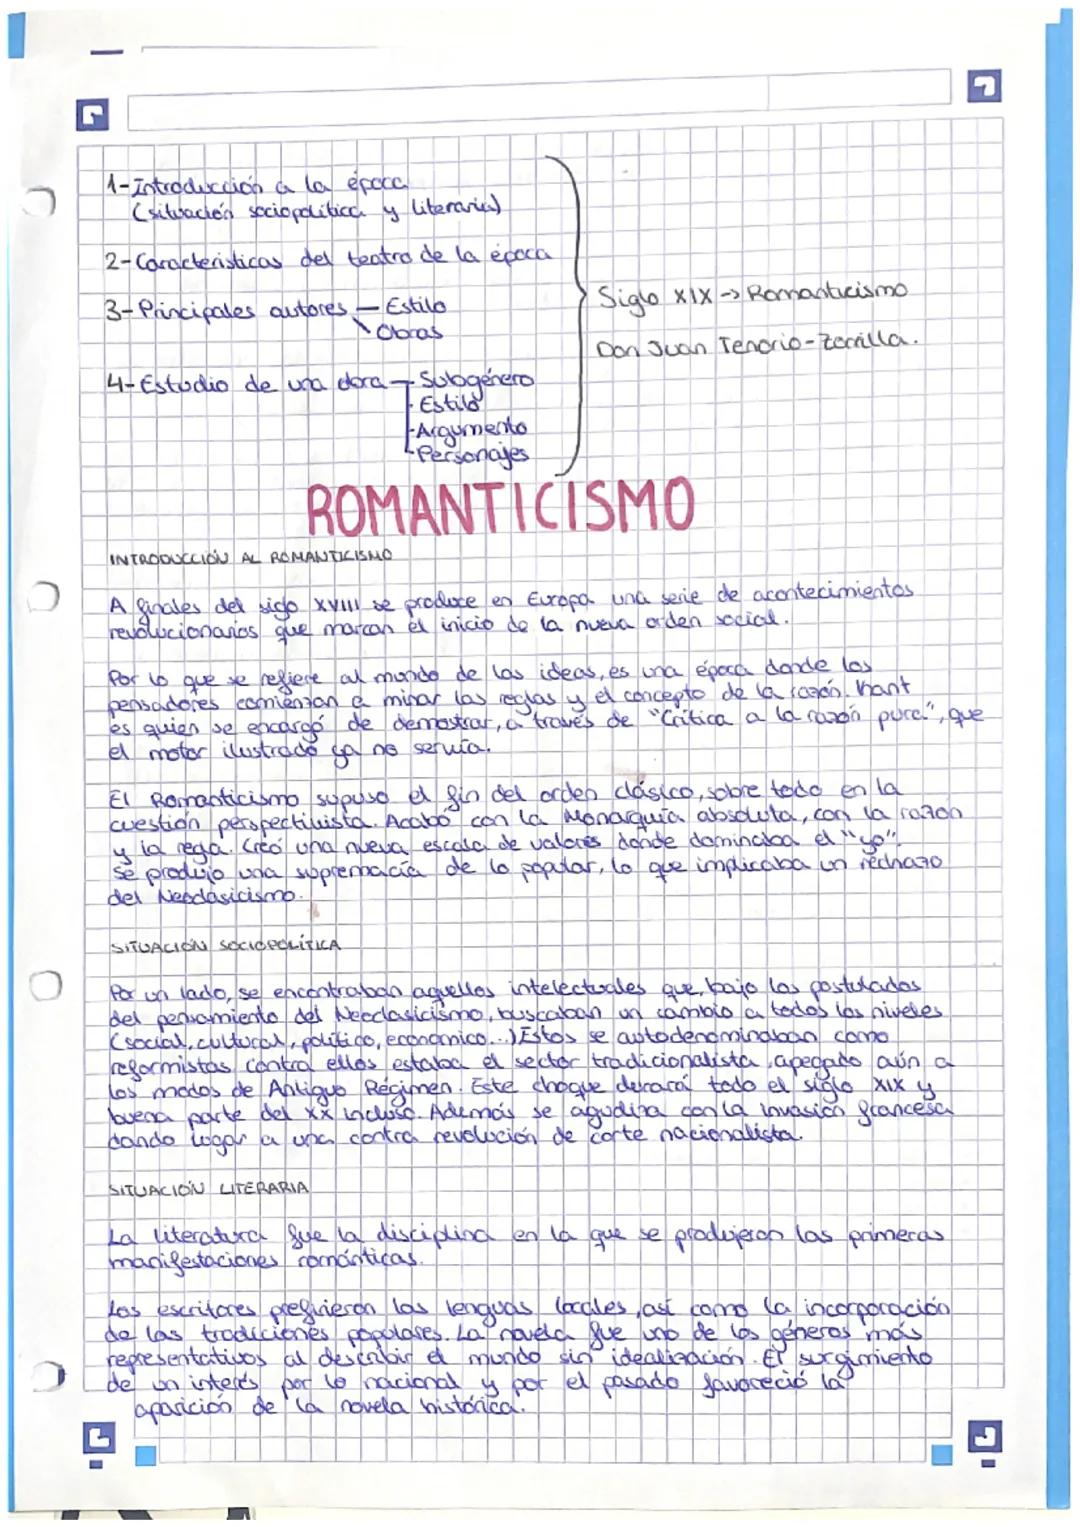 1-Introducción a la época
(situación sociopolítica y literaria)
2-Caracteristicas del teatro de la época
3-Principales autores — Estilo
Obras
Siglo XIX -> Romanticismo
Don Juan Tenorio-Zorrilla.
4-Estudio de una obra - Subgénero
- Estilo
-Argumento
-Personajes
ROMANTICISMO
INTRODUCCIÓN AL ROMANTICISMO
A finales del siglo XVIII se produce en Europa una serie de acontecimientos
revolucionarios que marcan el inicio de la nueva orden social.
Por lo que se refiere al mundo de las ideas, es una época donde los
pensadores comienzan a minar las reglas y el concepto de la razón. Kant
es quien se encargó de demostrar, a través de "Crítica a la razón pura", que
el motor ilustrado ya no servía.
El Romanticismo supuso el fin del orden clásico, sobre todo en la
cuestión perspectivista. Acabó con la Monarquía absoluta, con la razón
y la regla. Creó una nueva escala de valores donde dominaba el "yo".
Se produjo una supremacía de lo popular, lo que implicaba un rechazo
del Neoclasicismo.
SITUACIÓN SOCIOPOLÍTICA
Por un lado, se encontraban aquellos intelectuales que, bajo los postulados
del pensamiento del Neoclasicismo, buscaban un cambio a todos los niveles
(social, cultural, político, economico...) Estos se autodenominaban como
reformistas contra ellos estaba el sector tradicionalista, apegado aún a
los modos de Antiguo Régimen. Este choque durará todo el siglo XIX y
buena parte del XX incluso. Además se agudiza con la invasión francesa
dando lugar a una contra revolución de corte nacionalista.
SITUACIÓN LITERARIA
La literatura fue la disciplina en la que se produjeron las primeras
manifestaciones románticas.
Los escritores prefirieron las lenguas locales, así como la incorporación
de las tradiciones populares. La novela fue uno de los géneros más
representativos al describir el mundo sin idealización. El surgimiento
de un interés por lo nacional y por el pasado favoreció la
aparición de la novela histórica.